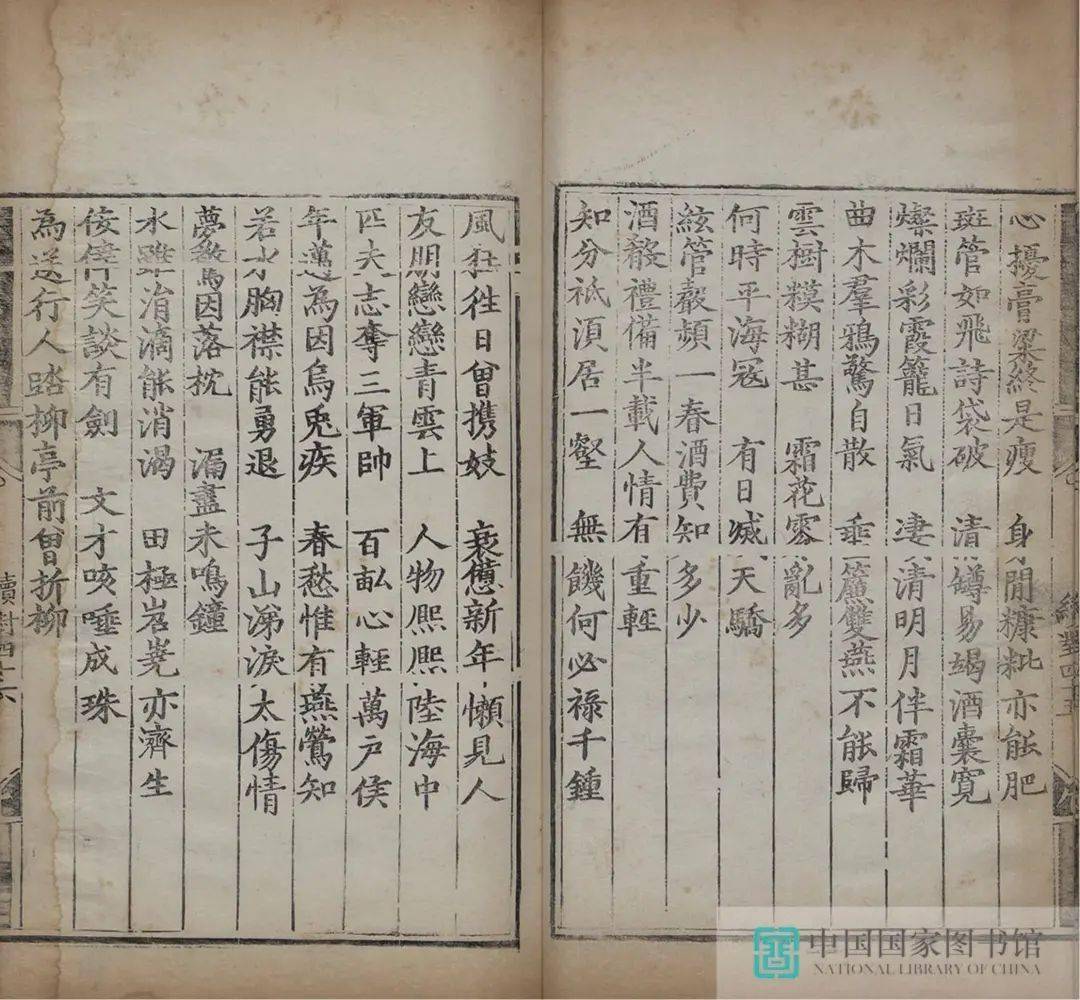 心擾膏粱終是瘦 身閒糠粃亦能肥
斑管如飛詩袋破 清罇易竭酒囊寛
燦爛彩霞籠日氣 凄清明月伴霜華
曲木羣鴉驚自散 垂簾雙燕不能歸
雲樹糢糊甚 霜花零亂多
何時平海冦 有日滅天驕
絃管聲頻一春酒費知多少
酒殽禮備半載人情有重輕
知分祇湏居一壑 無饑何必祿千鍾
風狂徃日曾携妓 衰憊新年懶見人
友朋戀戀青雲上 人物熈熈陸海中
匹夫志奪三軍帥 百畝心輕萬戸侯
年邁為因烏兎疾 春愁惟有燕鶯知
若水胸襟能勇退 子山涕淚太傷情
夢斷馬因落枕 漏盡未鳴鐘
水雖涓滴能消渴 田極岩嶤亦濟生
俊偉笑談有劍 文才咳唾成珠
為送行人踏柳亭前曾折柳
續對四十六
中国国家图书馆
NATIONAL LIBRARY OF CHINA